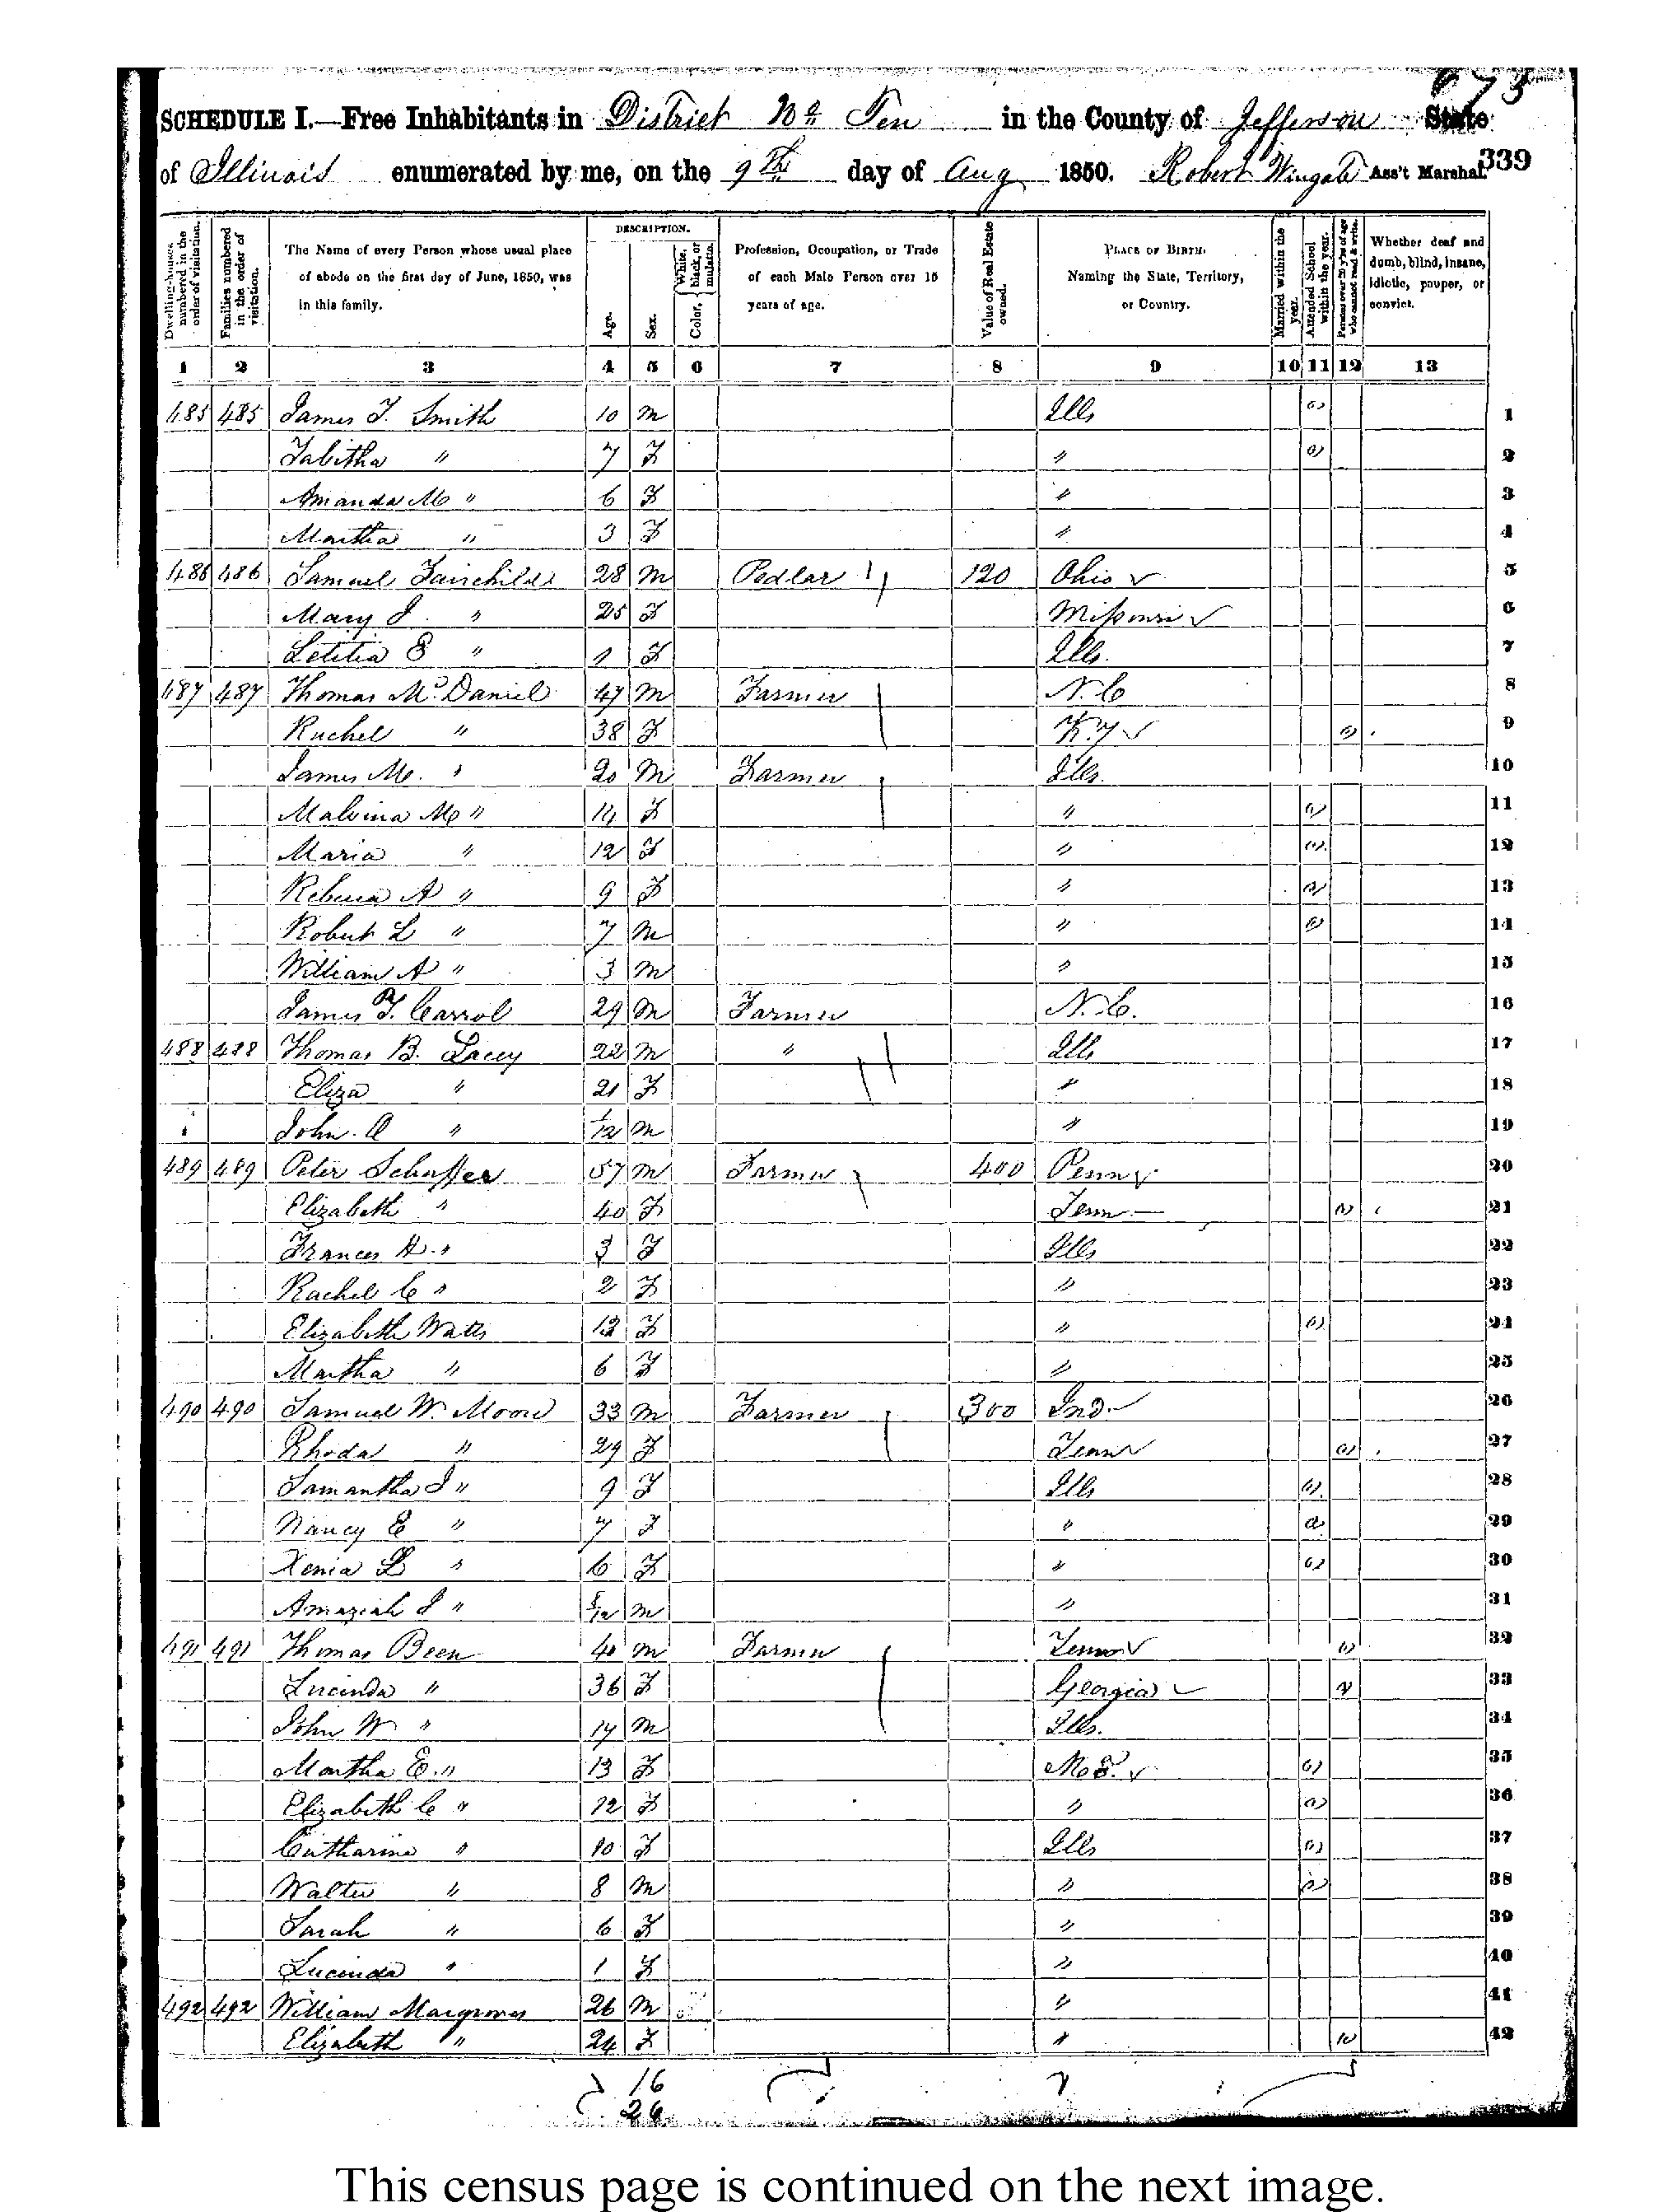 673
SCHEDULE I.—Free Inhabitants in District No Ten in the County of Jefferson State
of Illinois enumerated by me, on the 9th day of Aug 1850. Robert Wingate Ass't Marshal. 339
DESCRIPTION.
Dwelling-houses numbered in the order of visitation.
Families numbered in the order of visitation.
The Name of every Person whose usual place of abode on the first day of June, 1850, was in this family.
Age.
Sex.
Color, White, black, or mulatto.
Profession, Occupation, or Trade of each Male Person over 15 years of age.
Value of Real Estate owned.
PLACE OF BIRTH. Naming the State, Territory, or Country.
Married within the year.
Attended School within the year.
Persons over 20 y'rs of age who cannot read & write.
Whether deaf and dumb, blind, insane, idiotic, pauper, or convict.
1 2 3 4 5 6 7 8 9 10 11 12 13
485 485 James T. Smith 10 m Ills 1
Tabitha " 7 F " 2
Amanda M " 6 F " 3
Martha " 3 F " 4
486 486 Samuel Fairchilds 28 m Pedlar 120 Ohio 5
Mary J. " 25 F Missouri 6
Letitia E " 1 F Ills. 7
487 487 Thomas McDaniel 47 m Farmer N.C 8
Rachel " 38 F K.Y 9
James M. " 20 m Farmer Ills. 10
Malvina M " 14 F " 11
Maria " 12 F " 12
Rebecca A " 9 F " 13
Robert L " 7 m " 14
William A " 3 m " 15
James T. Carrol 29 m Farmer N.C. 16
488 488 Thomas B. Lacey 22 m " Ills 17
Eliza " 21 F " 18
John. A " 1/12 m " 19
489 489 Peter Schaffer 57 m Farmer 400 Penn 20
Elizabeth " 40 F Tenn 21
Frances A. " 3 F Ills 22
Rachel C " 2 F " 23
Elizabeth Watts 12 F " 24
Martha " 6 F " 25
490 490 Samuel W. Moore 33 m Farmer 300 Ind. 26
Rhoda " 29 F Tenn 27
Samantha J " 9 F Ills 28
Nancy E " 7 F " 29
Xenia L " 6 F " 30
Amaziah J " 5/12 m " 31
491 491 Thomas Been 40 m Farmer Tenn 32
Lucinda " 36 F Georgia 33
John W " 14 m Ills. 34
Martha E. " 13 F Mo. 35
Elizabeth C " 12 F " 36
Catharine " 10 F Ills 37
Walter " 8 m " 38
Sarah " 6 F " 39
Lucinda " 1 F " 40
492 492 William Margraves 26 m " 41
Elizabeth " 24 F " 42
16
26
This census page is continued on the next image.